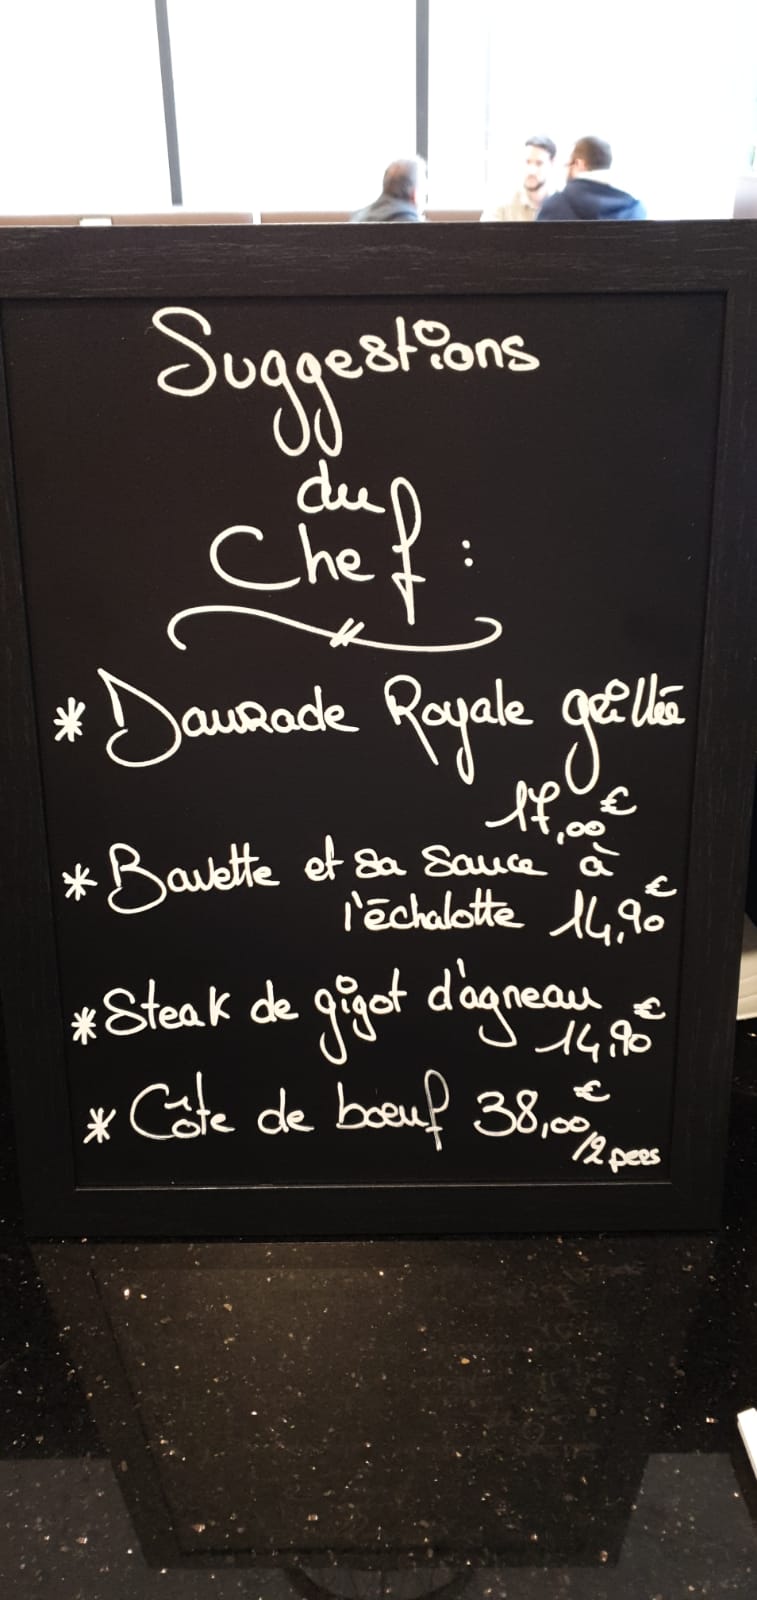 Suggestions
du
Chef :
* Daurade Royale grillée
17,00€
* Bavette et sa sauce à
l'échalotte 14,90€
* Steak de gigot d'agneau
14,90€
* Côte de boeuf 38,00€
/2 pers